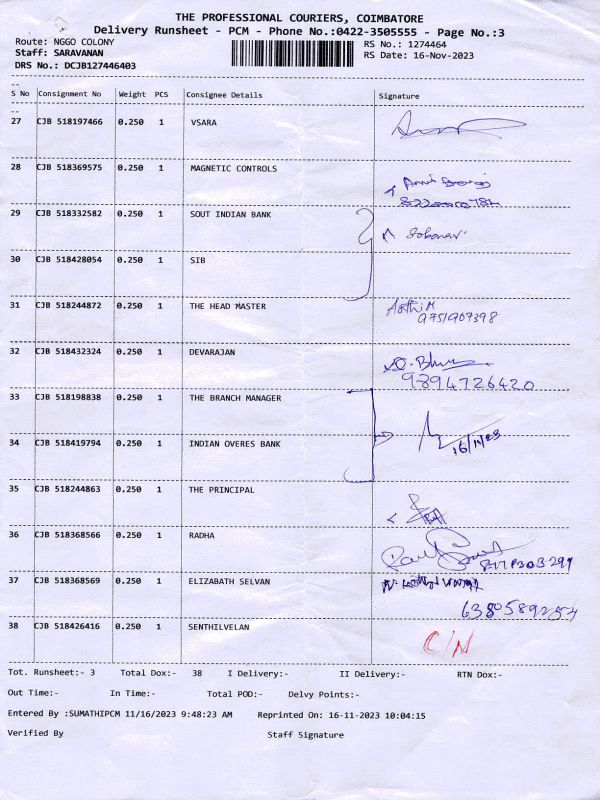 THE PROFESSIONAL COURIERS, COIMBATORE
Delivery Runsheet - PCM - Phone No.:0422-3505555 - Page No.:3
Route: NGGO COLONY RS No.: 1274464
Staff: SARAVANAN RS Date: 16-Nov-2023
DRS No.: DCJB127446403
S No Consignment No Weight PCS Consignee Details Signature
27 CJB 518197466 0.250 1 VSARA
28 CJB 518369575 0.250 1 MAGNETIC CONTROLS
29 CJB 518332582 0.250 1 SOUT INDIAN BANK
30 CJB 518428054 0.250 1 SIB
31 CJB 518244872 0.250 1 THE HEAD MASTER Aarthi M
9751907398
32 CJB 518432324 0.250 1 DEVARAJAN
9894726420
33 CJB 518198838 0.250 1 THE BRANCH MANAGER
34 CJB 518419794 0.250 1 INDIAN OVERES BANK 16/11/23
35 CJB 518244863 0.250 1 THE PRINCIPAL
36 CJB 518368566 0.250 1 RADHA
37 CJB 518368569 0.250 1 ELIZABATH SELVAN
38 CJB 518426416 0.250 1 SENTHILVELAN C/N
Tot. Runsheet:- 3 Total Dox:- 38 I Delivery:- II Delivery:- RTN Dox:-
Out Time:- In Time:- Total POD:- Delvy Points:-
Entered By :SUMATHIPCM 11/16/2023 9:48:23 AM Reprinted On: 16-11-2023 10:04:15
Verified By Staff Signature